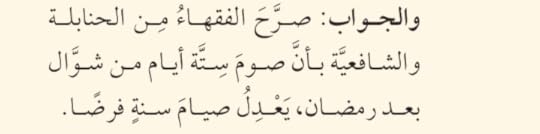 والجواب: صرَّحَ الفقهاءُ مِن الحنابلة
والشافعيَّة بأنَّ صومَ سِتَّة أيام من شوَّال
بعد رمضان، يَعْدِلُ صيامَ سنةٍ فرضًا.